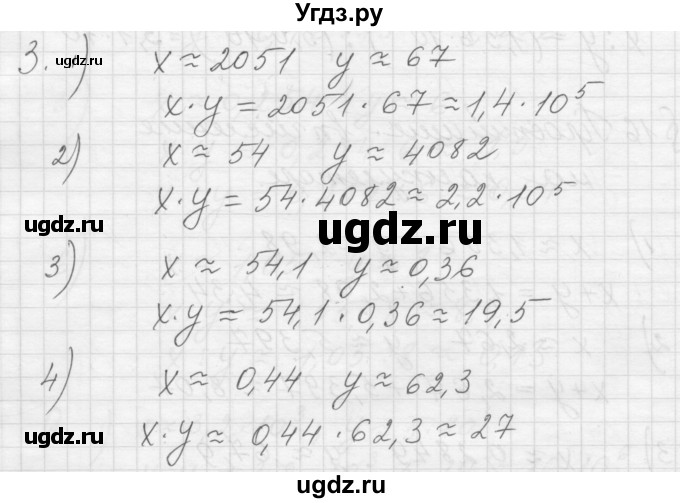 Угдз.ру
3. ) x ≈ 2051 y ≈ 67
x · y = 2051 · 67 ≈ 1,4 · 10⁵
ugdz.ru
2) x ≈ 54 y ≈ 4082
x · y = 54 · 4082 ≈ 2,2 · 10⁵
ugdz.ru
ugdz.ru
3) x ≈ 54,1 y ≈ 0,36
x · y ≈ 54,1 · 0,36 ≈ 19,5
ugdz.ru
4) x ≈ 0,44 y ≈ 62,3
x · y ≈ 0,44 · 62,3 ≈ 27
ugdz.ru
ugdz.ru